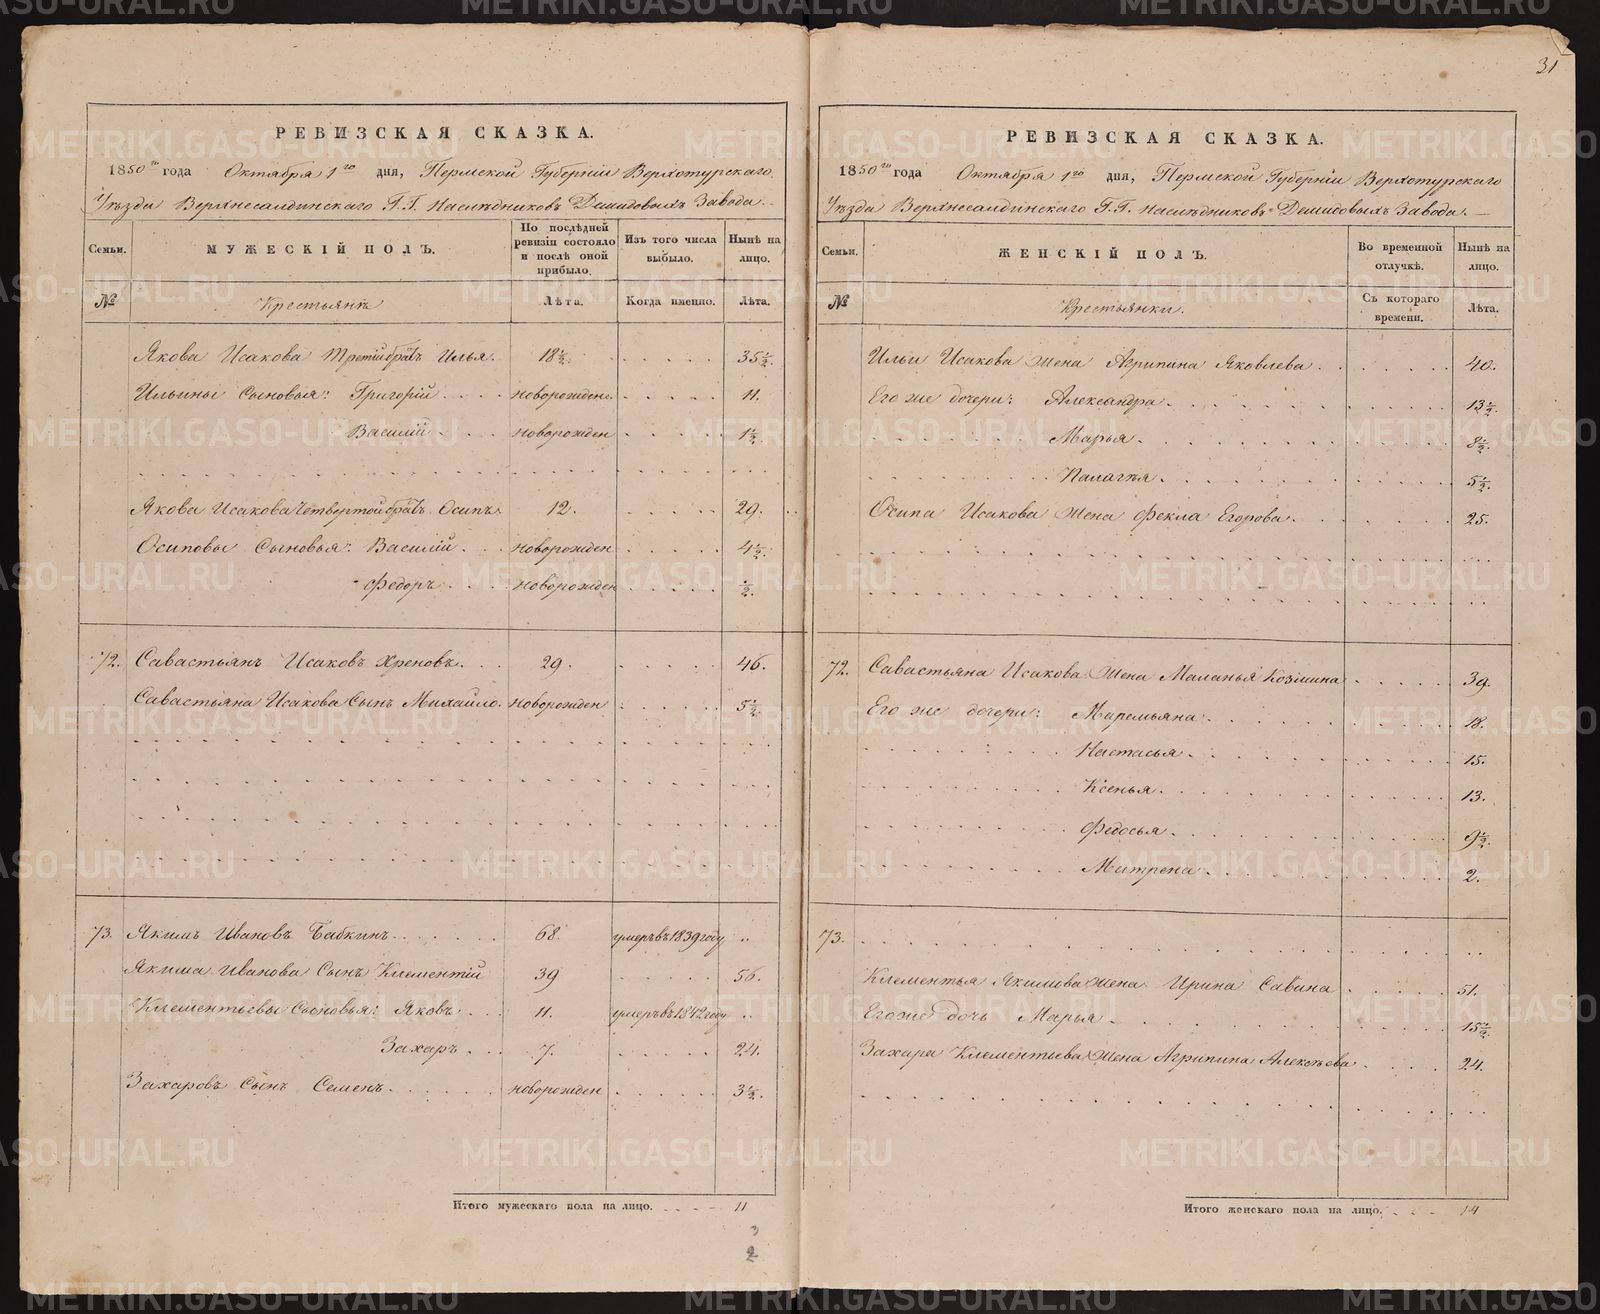 31
РЕВИЗСКАЯ СКАЗКА.
1850го года Октября 1го дня, Пермской Губерніи Верхотурскаго
Уѣзда Верхнесалдинскаго Г.Г. Наслѣдниковъ Демидовыхъ Завода.
Семьи. МУЖЕСКІЙ ПОЛЪ. По послѣдней ревизіи состояло и послѣ оной прибыло. Изъ того числа выбыло. Нынѣ на лицо.
№ Крестьянъ Лѣта. Когда именно. Лѣта.
Якова Исакова третій братъ Илья. 18½ 35½.
Ильины Сыновья: Григорій новорожден. 11.
Василій новорожден 1½.
Якова Исакова четвертой братъ Осипъ. 12. 29.
Осиповы Сыновья: Василій новорожден 4½.
Федоръ новорожден ½.
72. Савастьянъ Исаковъ Хреновъ. 29. 46.
Савастьяна Исакова Сынъ Михайло. новорожден 5½.
73. Якимъ Ивановъ Бабкинъ 68. умеръ въ 1839 году
Якима Иванова Сынъ Клементій 39 56.
Клементьевы Сыновья: Яковъ 11. умеръ въ 1842 году
Захаръ 7. 24.
Захаровъ Сынъ Семенъ новорожден 3½.
Итого мужескаго пола на лицо. 11
3
2
РЕВИЗСКАЯ СКАЗКА.
1850го года Октября 1го дня, Пермской Губерніи Верхотурскаго
Уѣзда Верхнесалдинскаго Г.Г. Наслѣдниковъ Демидовыхъ Завода.
Семьи. ЖЕНСКІЙ ПОЛЪ. Во временной отлучкѣ. Нынѣ на лицо.
№ Крестьянки. Съ котораго времени. Лѣта.
Ильи Исакова жена Агрипина Яковлева 40.
Его же дочери: Александра 13½.
Марья 8½.
Палагѣя 5½.
Осипа Исакова жена Фекла Егорова 25.
72. Савастьяна Исакова жена Маланья Козмина 39.
Его же дочери: Маремьяна 18.
Настасья 15.
Ксенья 13.
Федосья 9½.
Матрена 2.
73.
Клементья Якимова жена Ирина Савина 51.
Его же дочь Марья 15½
Захара Клементьева жена Агрипина Алексѣева 24.
Итого женскаго пола на лицо. 14
METRIKI.GASO-URAL.RU